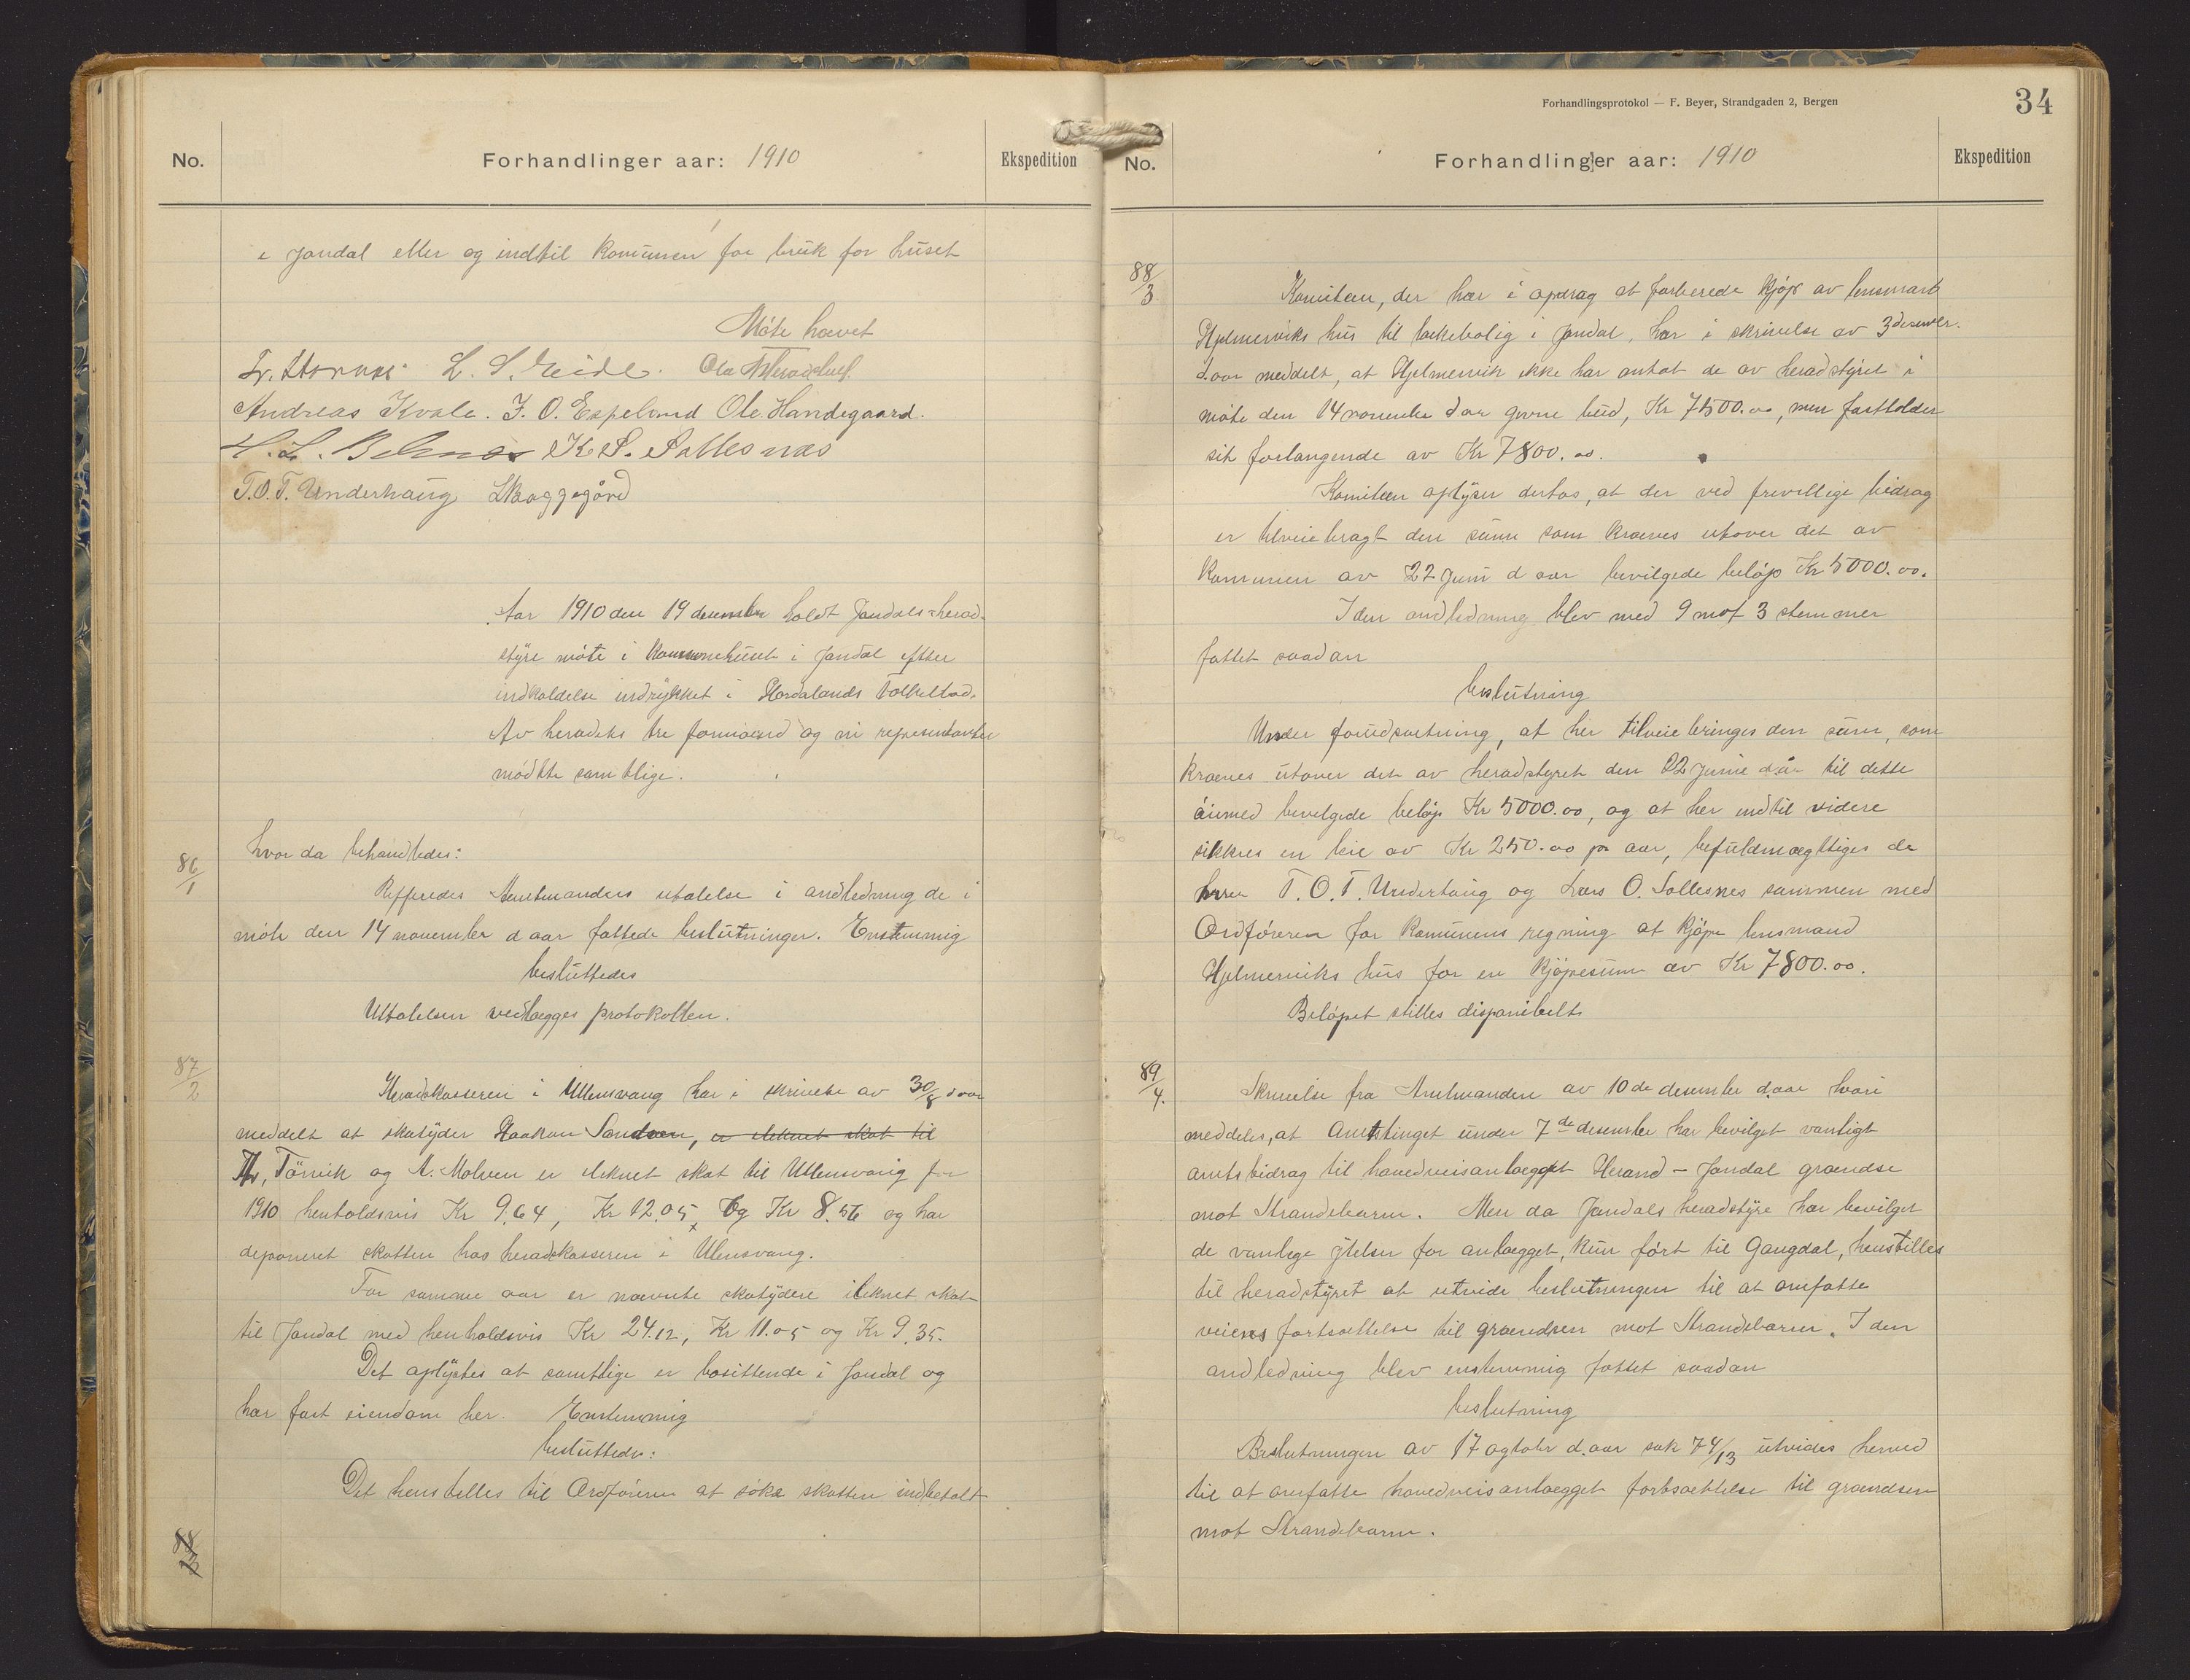 No.
Forhandlinger aar: 1910
Ekspedition
i Jondal eller og indtil komunen for bruk for huset
Möte hævet
L. S. Eide.
Andreas Kvale. J. O. Espeland Ole Handegaard.
K. S. Sollesnæs
T.O.T. Underhaug Skaggegård
Aar 1910 den 19 desember holdt Jondals herad-
styre möte i Kommunehuset i Jondal efter
indkaldelse indrykket i Hordalands Folkeblad.
Av heradets tre formænd og ni representanter
mödte samtlige.
86/1
hvor da behandledes:
Refferedes Amtmandens utalelse i andledning de i
möte den 14 november d aar fattede beslutninger. Enstemmig
besluttedes
Uttalelsen vedlægges protokollen.
87/2
Heradskasseren i Ullensvang har i skrivelse av 30/8 d aar
meddelt at skatyder Haakon Sandven, er ileknet skat til
Th. Törvik og A. Molven er ileknet skat til Ullensvang for
1910 henholdsvis Kr 9.64, Kr 12.05, og Kr 8.56 og har
deponeret skatten hos heradskasseren i Ulensvang.
For samme aar er nævnte skatydere ileknet skat
til Jondal med henholdsvis Kr 24.12, Kr 11.05 og Kr 9.35.
Det oplystes at samtlige er bosittende i Jondal og
har fast eiendom her. Enstemmig
besluttedes:
Det henstilles til Ordföreren at söke skatten indbetalt
88/3
Forhandlingsprotokol — F. Beyer, Strandgaden 2, Bergen
34
No.
Forhandlinger aar: 1910
Ekspedition
88/3
Komiteen, der har i opdrag at forberede kjöp av lensmand
Hjelmerviks hus til lækebolig i Jondal, har i skrivelse av 3 desember.
d.aar meddelt, at Hjelmervik ikke har antat de av heradstyret i
möte den 14 november d aar givne bud, Kr 7500.00, men fastholder
sit forlangende av Kr 7800.00.
Komiteen oplyser derhos, at der ved frivillige bidrag
er tilveiebragt den sum som kræves utover det av
Kommunen av 22 Juni d aar bevilgede belöp Kr 5000.00.
I den andledning blev med 9 mot 3 stemmer
fattet saadan
beslutning
Under forudsætning, at her tilveiebringes den sum, som
kræves utover det av heradstyret den 22 Juni d.år til dette
öiemed bevilgede belöp Kr 5000.00, og at her indtil videre
sikkres en leie av Kr 250.00 pr aar, befuldmægtiges de
herrer T.O.T. Underhaug og Lars O. Sollesnes sammen med
Ordföreren for Komunens regning at kjöpe lensmand
Hjelmerviks hus for en kjöpesum av Kr 7800.00.
Belöpet stilles disponibelt
89/4.
Skrivelse fra Amtmanden av 10de desember d.aar hvori
meddeles, at Amtstinget under 7de desember har bevilget vanligt
amtsbidrag til hovedveisanlægget Herand - Jondal grændse
mot Strandebarm. Men da Jondals heradstyre har bevilget
de vanlige ytelser for anlægget, kun fört til Gangdal, henstilles
til heradstyret at utvide beslutningen til at omfatte
veiens fortsættelse til grændsen mot Strandebarm. I den
andledning blev enstemmig fattet saadan
beslutning
Beslutningen av 17 ogtobr d.aar sak 74/13 utvides herved
til at omfatte hovedveisanlægget fortsættelse til grændsen
mot Strandebarm.